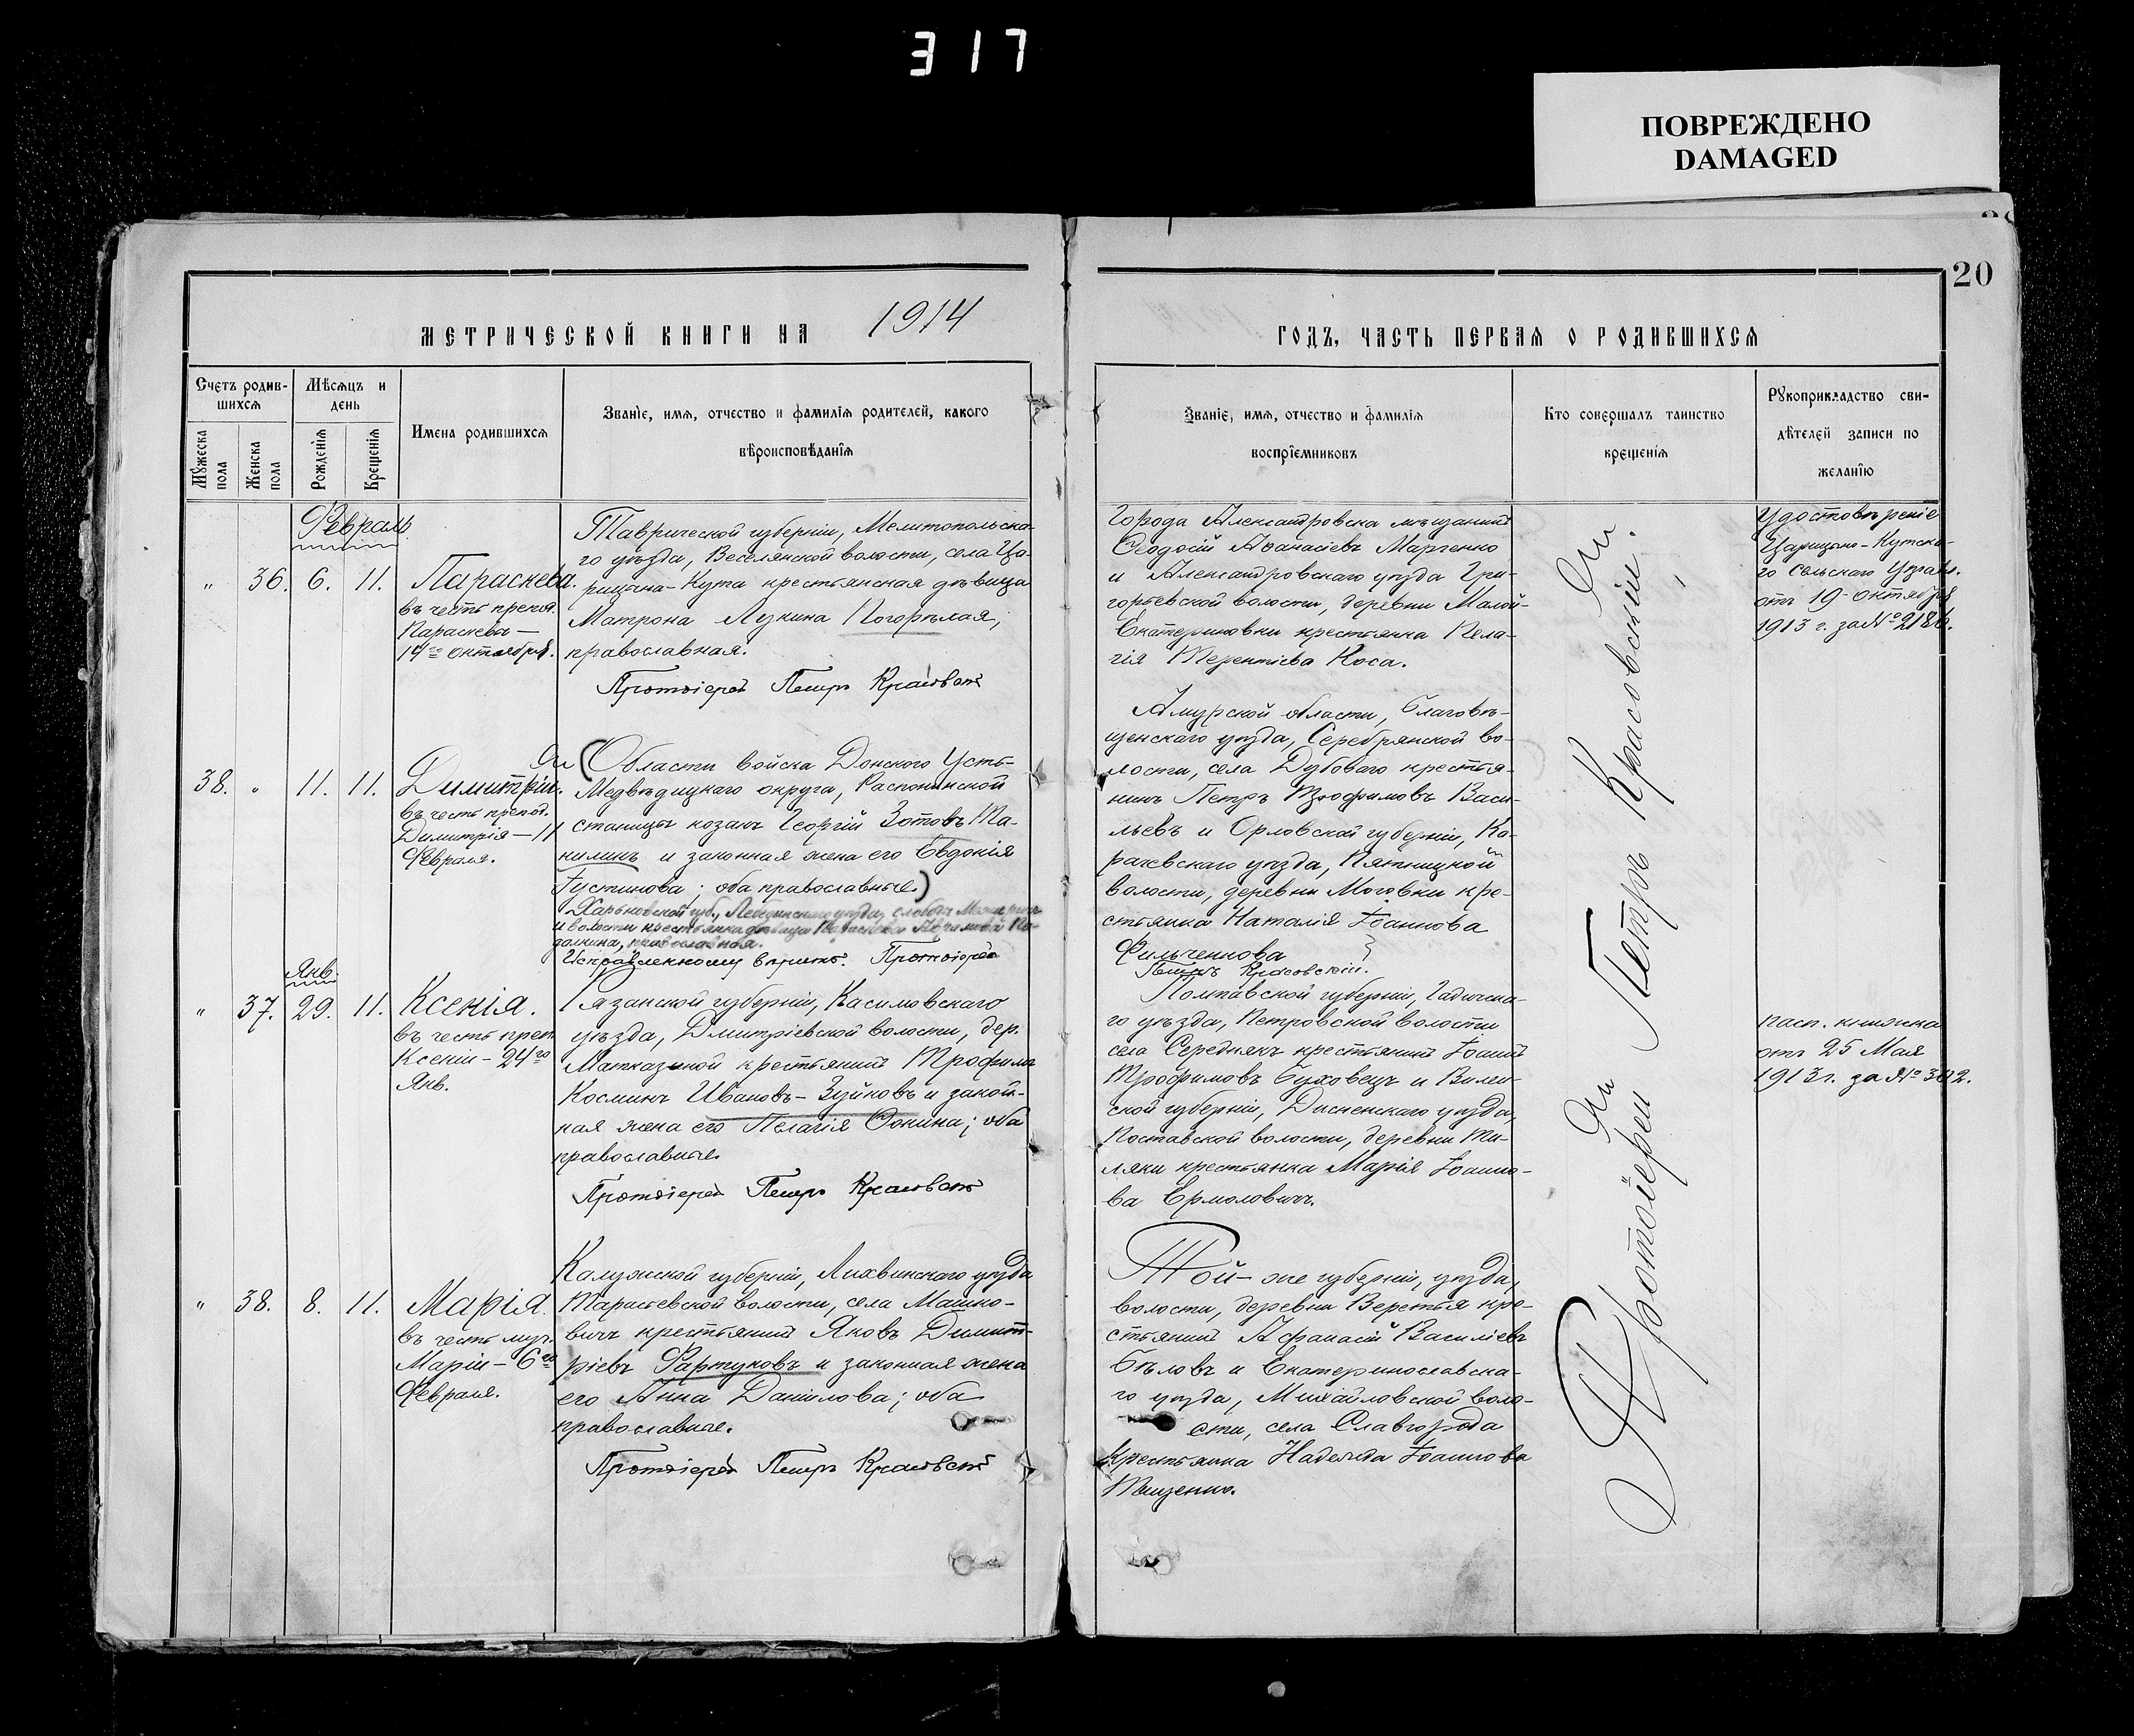 317
ПОВРЕЖДЕНО
DAMAGED
20
МЕТРИЧЕСКОЙ КНИГИ НА 1914
ГОДЪ, ЧАСТЬ ПЕРВАЯ О РОДИВШИХСЯ
Счетъ родив-
шихся
Мѣсяцъ и
день
Мужеска
пола
Женска
пола
Рожденія
Крещенія
Имена родившихся
Званіе, имя, отчество и фамилія родителей, какого
вѣроисповѣданія
Званіе, имя, отчество и фамилія
воспріемниковъ
Кто совершалъ таинство
крещенія
Рукоприкладство сви-
дѣтелей записи по
желанію
Февраль
" 36. 6. 11.
Параскева.
въ честь препод.
Параскевы —
14го октября.
Таврической губерніи, Мелитопольска-
го уѣзда, Веселянской волости, села Ца-
рицына-Кута крестьянская дѣвица
Матрона Лукина Погорѣлая,
православная.
Протоіерей Петръ Красовскій
Города Александровска мѣщанинъ
Ѳеодосій Аѳанасіевъ Марченко
и Александровскаго уѣзда Гри-
горьевской волости, деревни Малой-
Екатериновки крестьянка Пела-
гія Терентіева Коса.
Удостовѣреніе
Царицыно-Кутска-
го Сельскаго Управл.
отъ 19 октября
1913 г. за № 2186.
38. " 11. 11.
Димитрій.
въ честь препод.
Димитрія — 11
Февраля.
(Области войска Донского Усть-
Медвѣдицкаго округа, Распопинской
станицы козакъ Георгій Зотовъ Та-
нилинъ и законная жена его Евдокія
Іустинова; оба православные.)
Харьковской губ., Лебединскаго уѣзда, слободы
и волости крестьянка дѣвица
православная.
Исправленному вѣрить. Протоіерей
Петръ Красовскій.
Амурской области, Благовѣ-
щенскаго уѣзда, Серебрянской во-
лости, села Дубоваго крестья-
нинъ Петръ Трофимовъ Васи-
льевъ и Орловской губерніи, Ка-
рачевскаго уѣзда, Пятницкой
волости, деревни Моговки кре-
стьянка Наталія Іоаннова
Фильченкова
Янв.
" 37. 29. 11.
Ксенія.
въ честь преп.
Ксеніи — 24го
Янв.
Рязанской губерніи, Касимовскаго
уѣзда, Дмитріевской волости, дер.
Матказиной крестьянинъ Трофимъ
Косминъ Ивановъ-Зуйковъ и закон-
ная жена его Пелагія Ѳокина; оба
православные.
Протоіерей Петръ Красовскій
Полтавской губерніи, Гадячска-
го уѣзда, Петровской волости
села Середнякъ крестьянинъ Іоаннъ
Трофимовъ Буховецъ и Вилен-
ской губерніи, Дисненскаго уѣзда,
Поставской волости, деревни Ти-
ляки крестьянка Марія Іоанно-
ва Ермоловичъ.
пасп. книжка
отъ 25 Мая
1913 г. за № 302.
" 38. 8. 11.
Марія.
въ честь муч.
Маріи — 6го
Февраля.
Калужской губерніи, Лихвинскаго уѣзда
Тарасевской волости, села Машко-
вичъ крестьянинъ Яковъ Димит-
ріевъ Фартуковъ и законная жена
его Анна Данилова; оба
православные.
Протоіерей Петръ Красовскій
Той-же губерніи, уѣзда,
волости, деревни Веретья кре-
стьянинъ Афанасій Василіевъ
Бѣловъ и Екатеринославска-
го уѣзда, Михайловской воло-
сти, села Славгорода
крестьянка Надежда Іоаннова
Тищенко.
Протоіерей Петръ Красовскій.